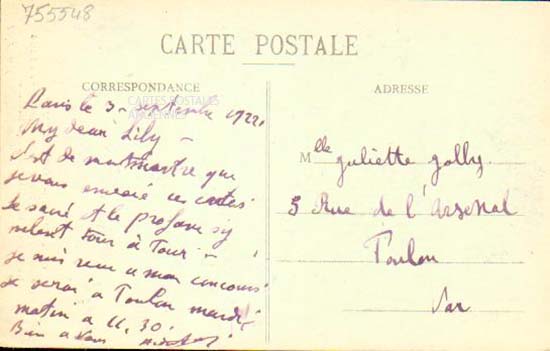 755548
CARTE POSTALE
CORRESPONDANCE
CARTES POSTALES
ANCIENNES
Paris le 3 septembre 1922
My dear Lily -
C'est de montmartre que
je vous envoie ces cartes
le sacré et le profane s'y
mêlent Tour à Tour -
je suis reçu a mon concours
je serai à Toulon mardi
matin à 11.30
Bien à vous
ADRESSE
Mlle juliette jolly
5 Rue de l'Arsenal
Toulon
Var